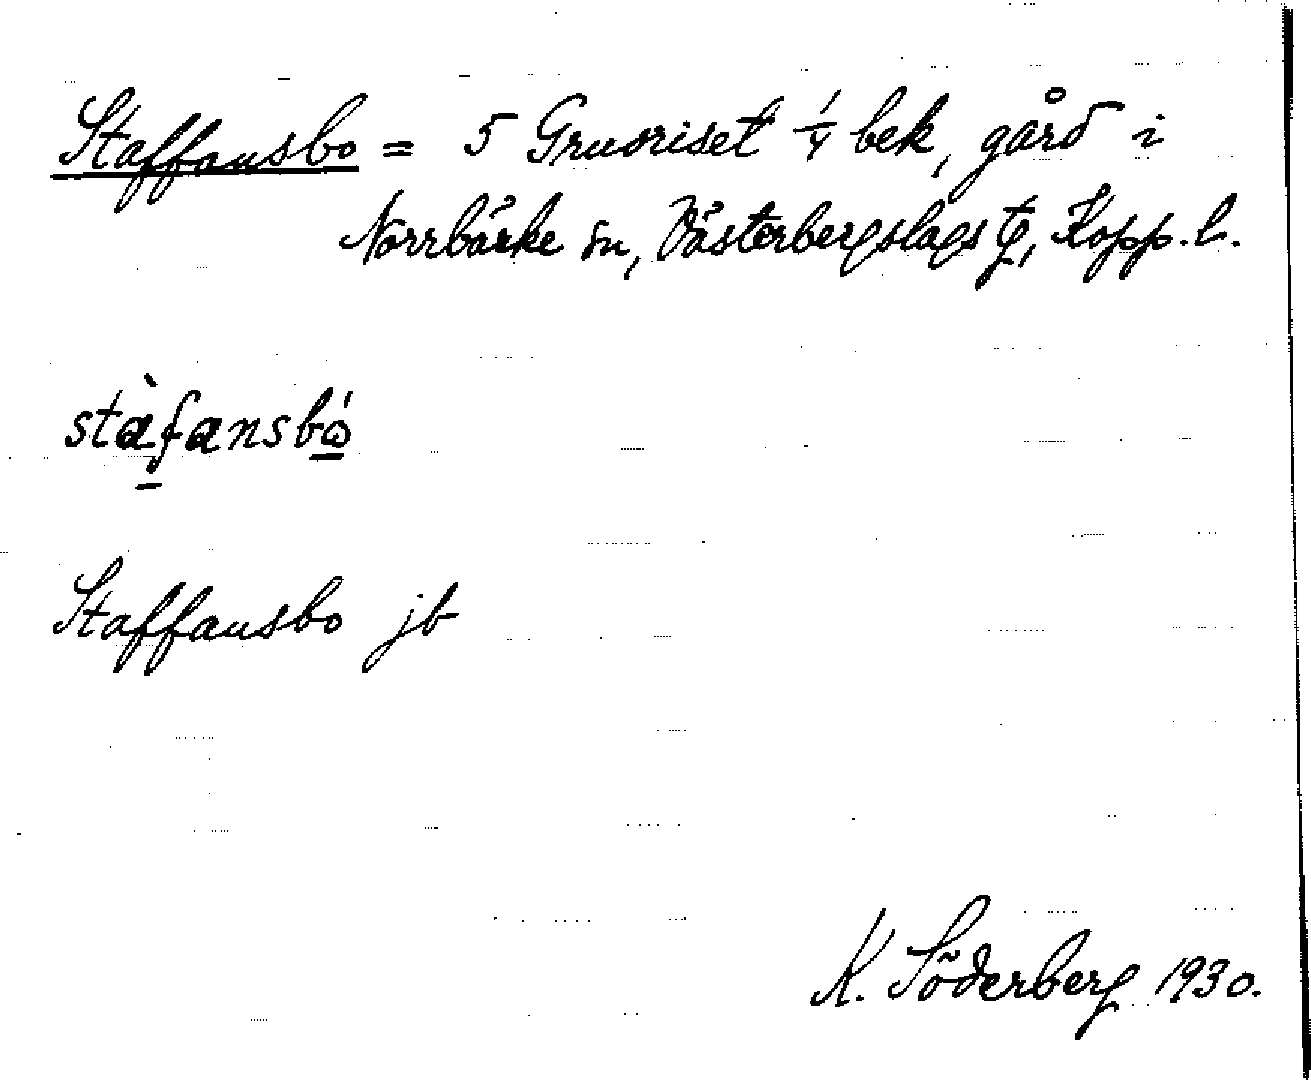 Staffansbo = 5 Grusriset 1/4 bek, gård i
Norrbärke sn, Västerbergslags tg, Kopp. l.
stàfansbó
Staffansbo jb
K. Söderberg 1930.